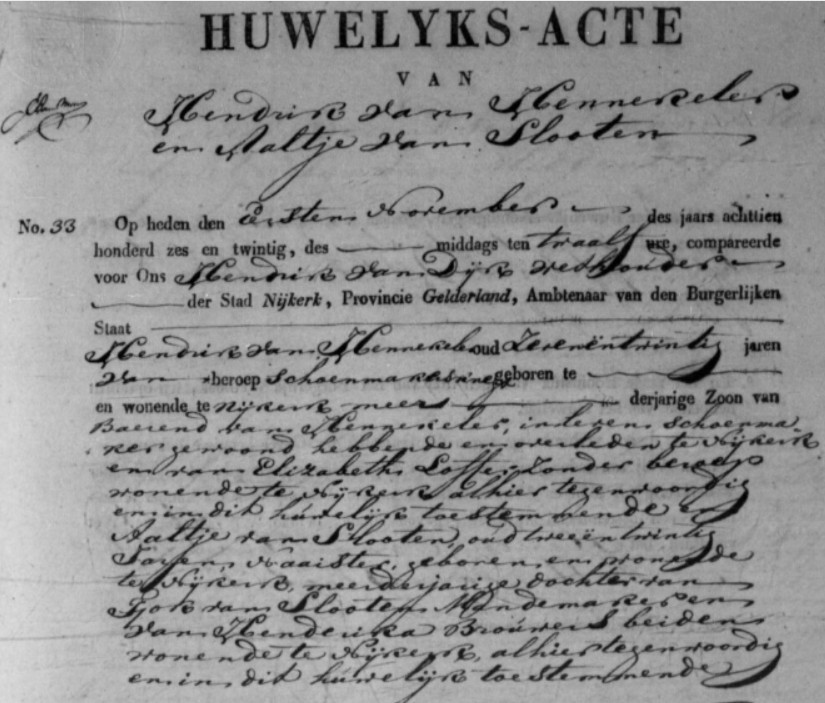 HUWELYKS-ACTE
VAN
Hendrik van Hennekeler
en Aaltje van Slooten
No. 33 Op heden den Eersten November des jaars achttien
honderd zes en twintig, des middags ten twaalf ure, compareerde
voor Ons Hendrik van Dijk wethouder
der Stad Nijkerk, Provincie Gelderland, Ambtenaar van den Burgerlijken
Staat
Hendrik van Hennekeler oud Zevenëntwintig jaren
van beroep Schoenmaker geboren te
en wonende te Nijkerk meer derjarige Zoon van
Barend van Hennekeler, in leven Schoenma
ker gewoond hebbende en overleden te Nijkerk
en van Elizabeth Zonder beroep
wonende te Nijkerk alhier tegenwoordig
en in dit huwelijk toestemmende en
Aaltje van Slooten, oud tweeëntwintig
Jaren, Naaister, geboren en wonende
te Nijkerk, meerderjarige dochter van
van Slooten Mandemaker en
van Henderika Brouwer beiden
wonende te Nijkerk, alhier tegenwoordig
en in dit huwelijk toestemmende